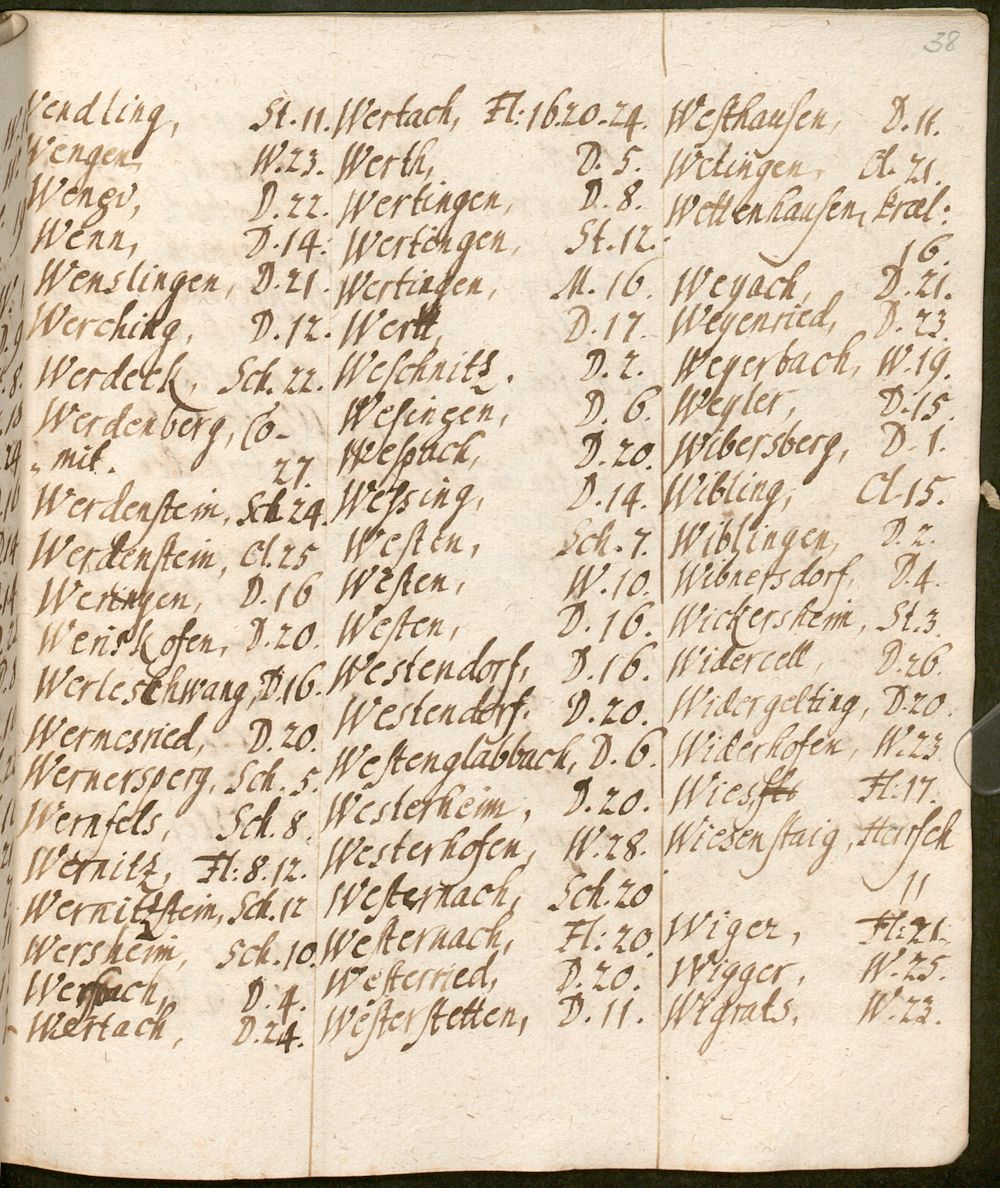 38
Wendling, St. 11.
Wengen, W. 23.
Wengi, D. 22.
Wenn, D. 14.
Wenslingen, D. 21.
Werching, D. 12.
Werdeck, Sch. 22.
Werdenberg, Co-
mit. 27.
Werdenstein, Sch. 24.
Werdenstein, Cl. 25
Weringen, D. 16
Werishofen, D. 20.
Werleschwang, D. 16.
Wermesried, D. 20.
Wernersperg, Sch. 5.
Wernfels, Sch. 8.
Wernitz, Fl: 8. 12.
Wernitzstein, Sch. 12
Wersheim, Sch. 10.
Werspach, D. 4.
Wertach, D. 24.
Wertach, Fl: 16. 20. 24.
Werth, D. 5.
Wertingen, D. 8.
Wertingen, St. 12.
Wertingen, M. 16.
Wertt, D. 17.
Weschnitz. D. 2.
Wesingen, D. 6.
Wespach, D. 20.
Wessing, D. 14.
Westen, Sch. 7.
Westen, W. 10.
Westen, D. 16.
Westendorf, D. 16.
Westendorf. D. 20.
Westenglabbach, D. 6.
Westerheim, D. 20.
Westerhofen, W. 28.
Westernach, Sch. 20
Westernach, Fl: 20.
Westerried, D. 20.
Westerstetten, D. 11.
Westhausen, D. 11.
Wetingen, Cl. 21.
Wettenhausen, Præl:
16.
Weyach, D. 21.
Weyenried, D. 23.
Weyerbach, W. 19.
Weyler, D. 15.
Wibersberg, D. 1.
Wibling, Cl. 15.
Wiblingen, D. 2.
Wibnersdorf, D. 4.
Wickersheim, St. 3.
Widercell, D. 26.
Widergelting, D. 20.
Widerhofen, W. 23.
Fl: 17.
Wiesenstaig, Herrsch
11
Wiger, Fl: 21.
Wigger, W. 25.
Wigrats, W. 23.